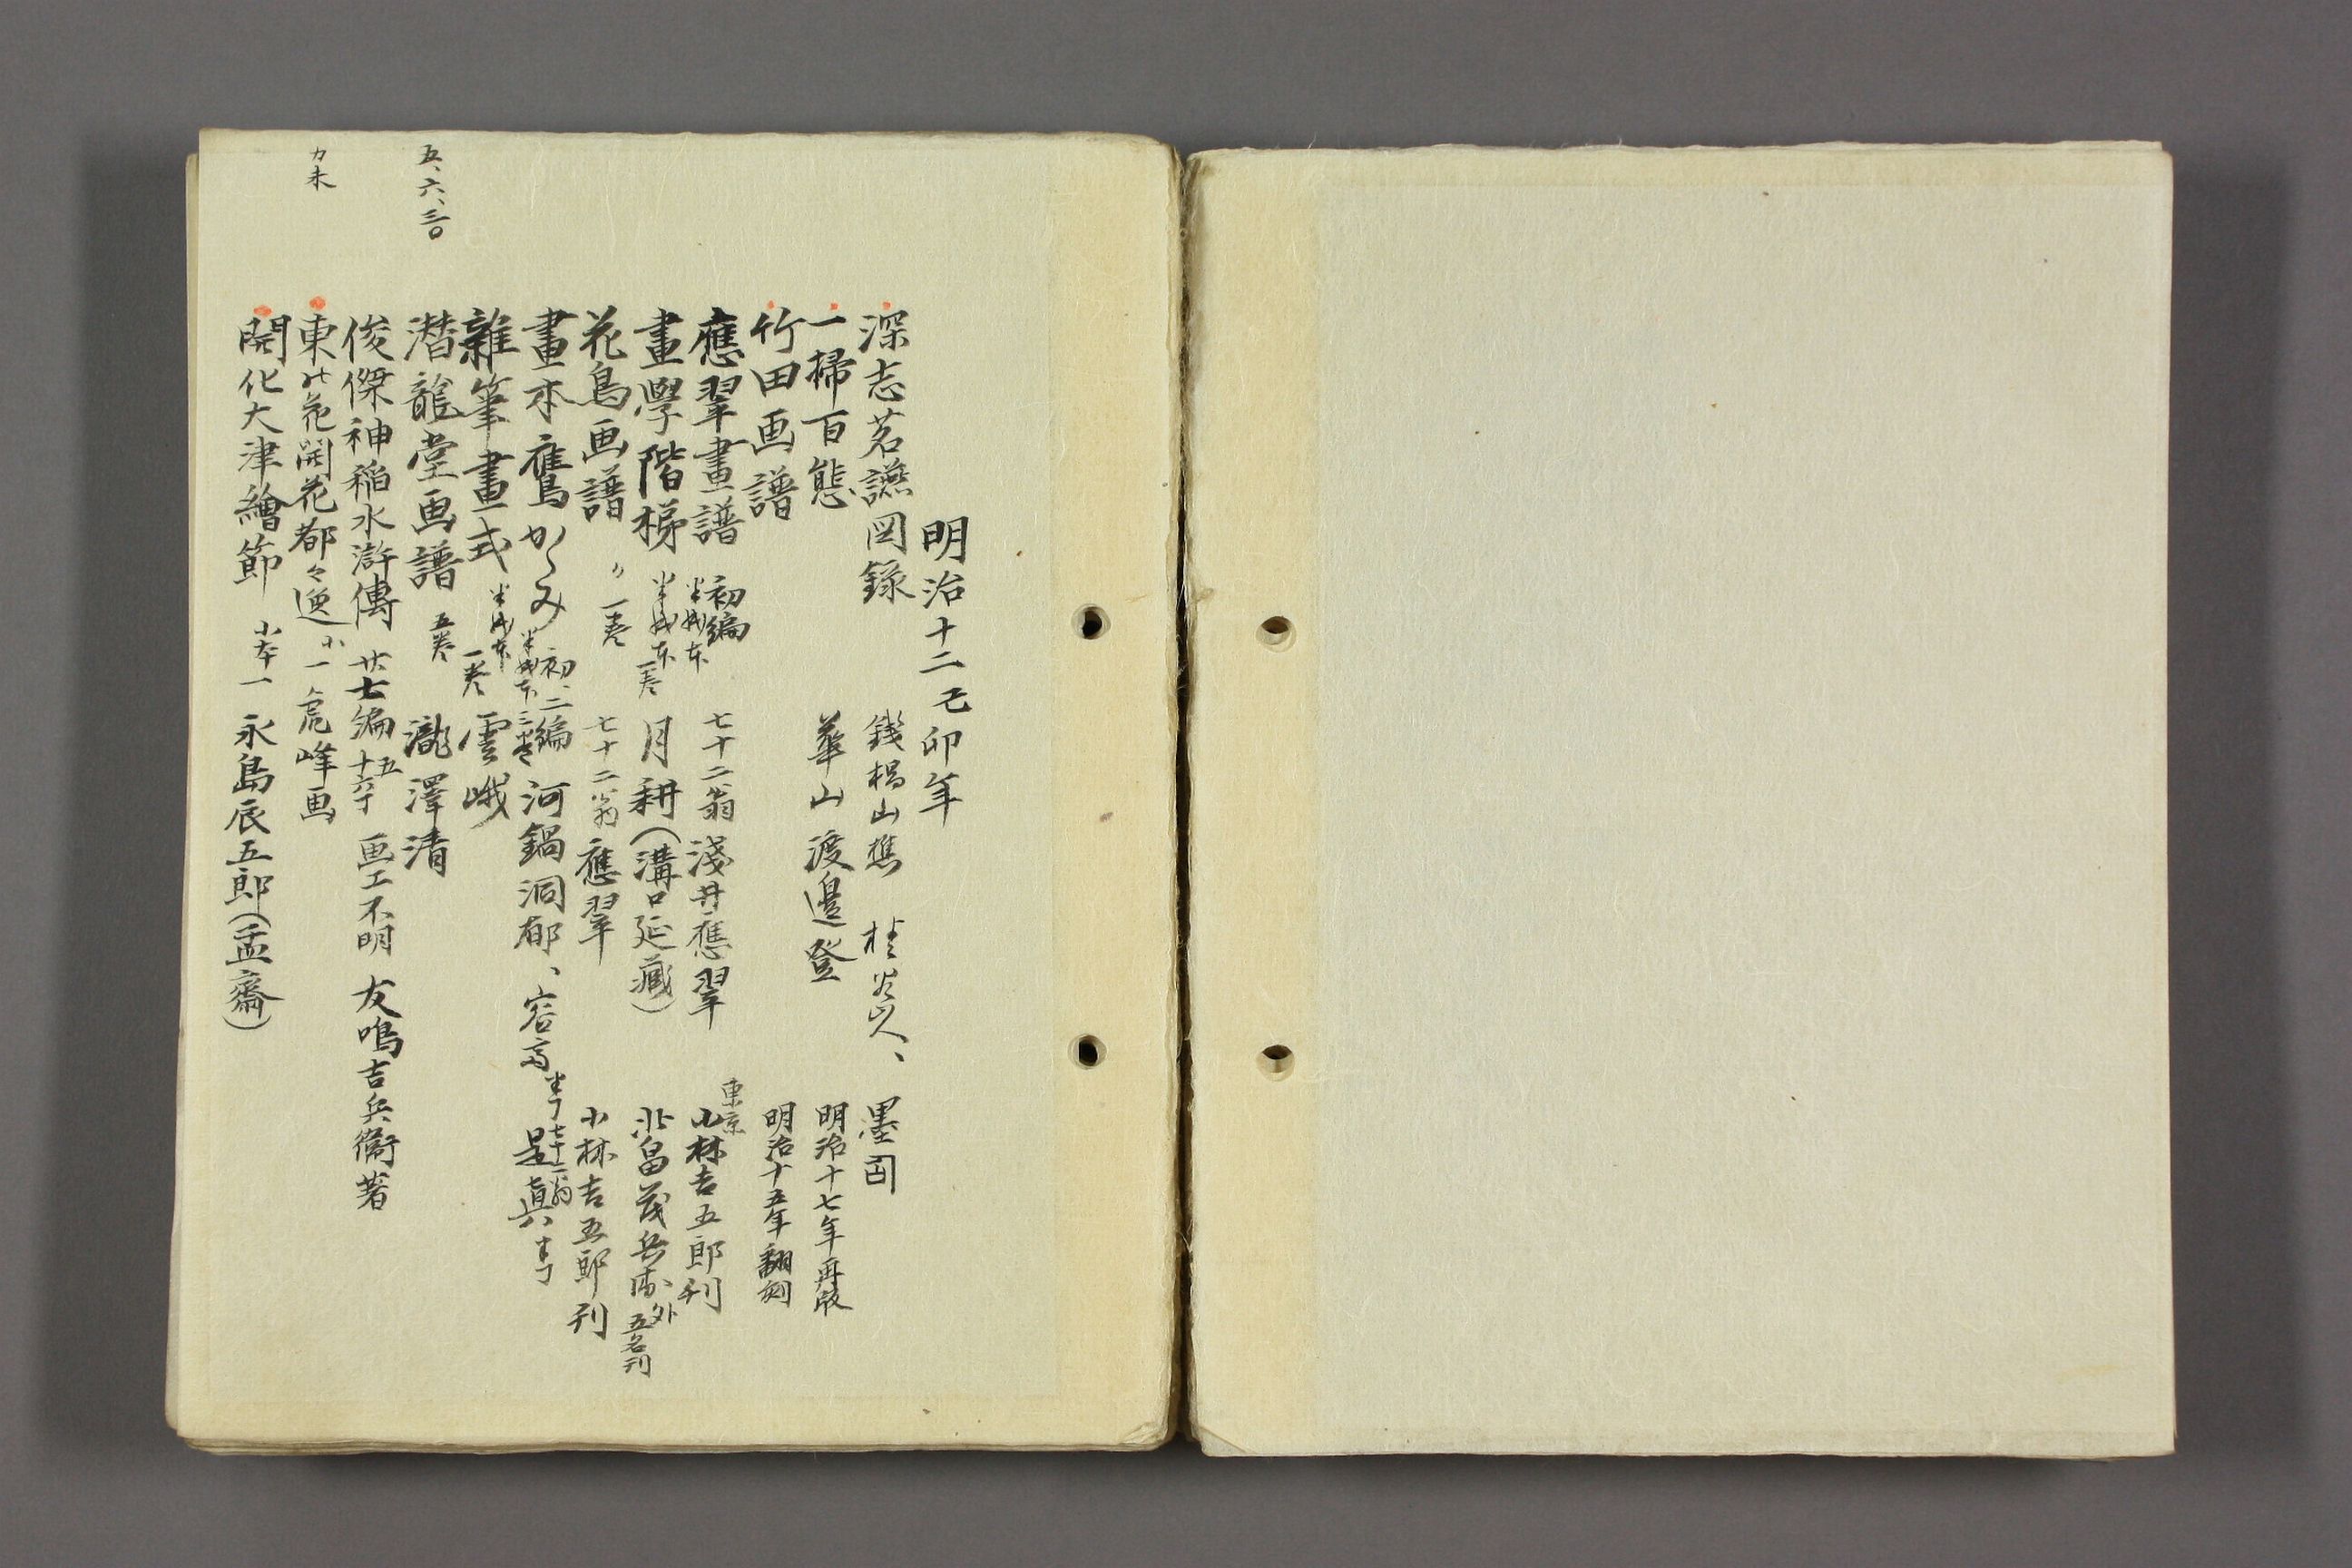 明治十二己卯年
深志茗讌図録 錢楊山樵 桂谷山人、墨固
一掃百態 華山渡邉登 明治十七年再版
竹田画譜 明治十五年翻刻
應翠畫譜 初編 半紙本 七十二翁 淺井應翠 東京 小林吉五郎刊
畫學階梯 半紙本 一卷 月耕(溝口延藏) 北畠茂兵衛外五名刊
花鳥画譜 〃 一卷 七十二翁 應翠 小林吉五郎刊
畫本鷹かゝみ 初、二編 半紙本 三卷 河鍋洞郁、容斎 七十二翁 是眞
雜筆畫式 半紙本 一卷 雲峨
五、六、三〇
潜龍堂画譜 五卷 瀧澤清
俊傑神稲水滸傳 廿七編 画工不明 友鳴吉兵衞著
東此花開花都々逸 小一 虎峰画
開化大津繪節 小本一 永島辰五郎(孟齋)